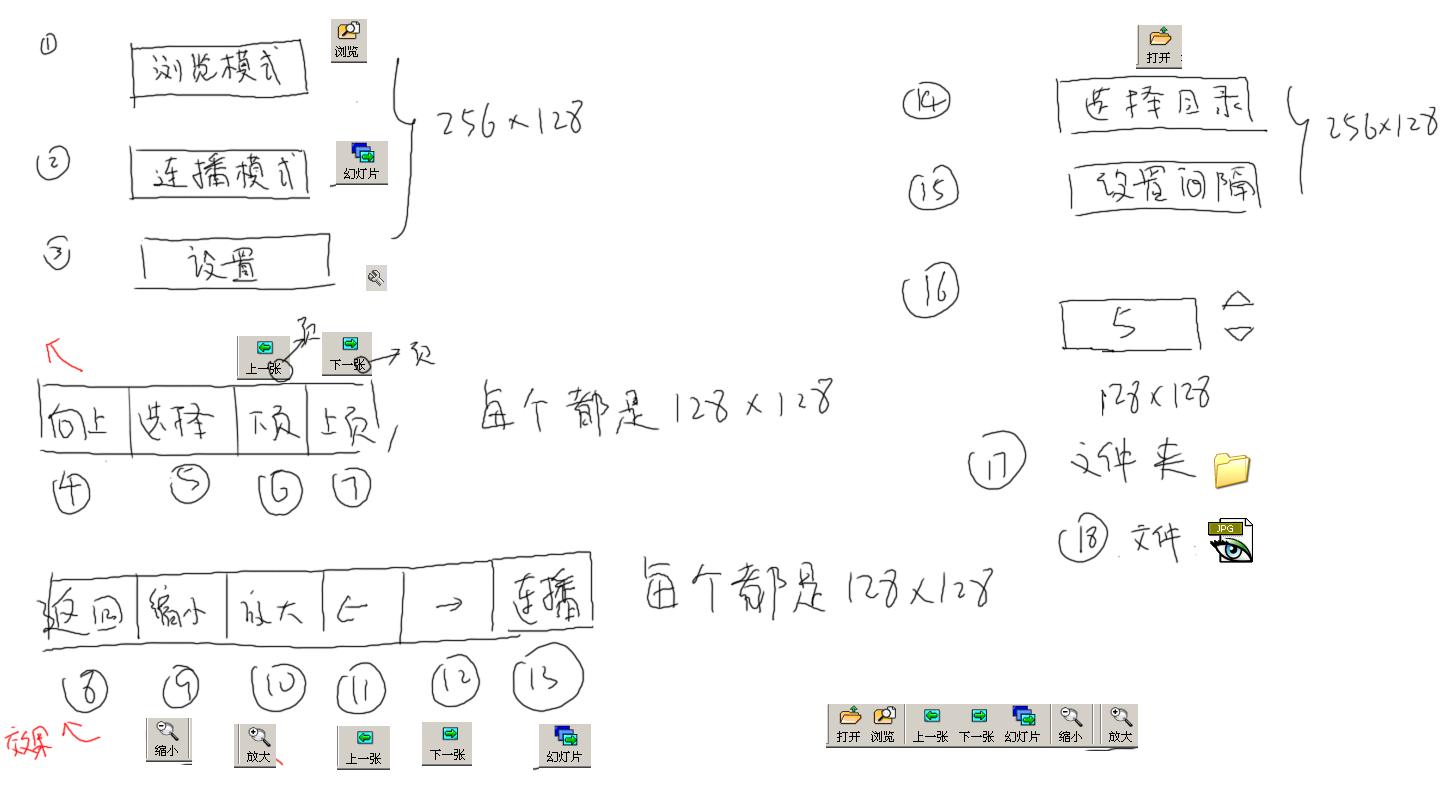 ①
浏览模式
浏览
②
连播模式
幻灯片
256×128
③
设置
上一张
页
下一张
页
向上 选择 下页 上页
④ ⑤ ⑥ ⑦
每个都是128×128
返回 缩小 放大 ← → 连播
⑧ ⑨ ⑩ ⑪ ⑫ ⑬
每个都是128×128
效果
缩小 放大 上一张 下一张 幻灯片
打开
⑭ 选择目录
⑮ 设置间隔
256×128
⑯
5
128×128
⑰ 文件夹
⑱ 文件
JPG
打开 浏览 上一张 下一张 幻灯片 缩小 放大